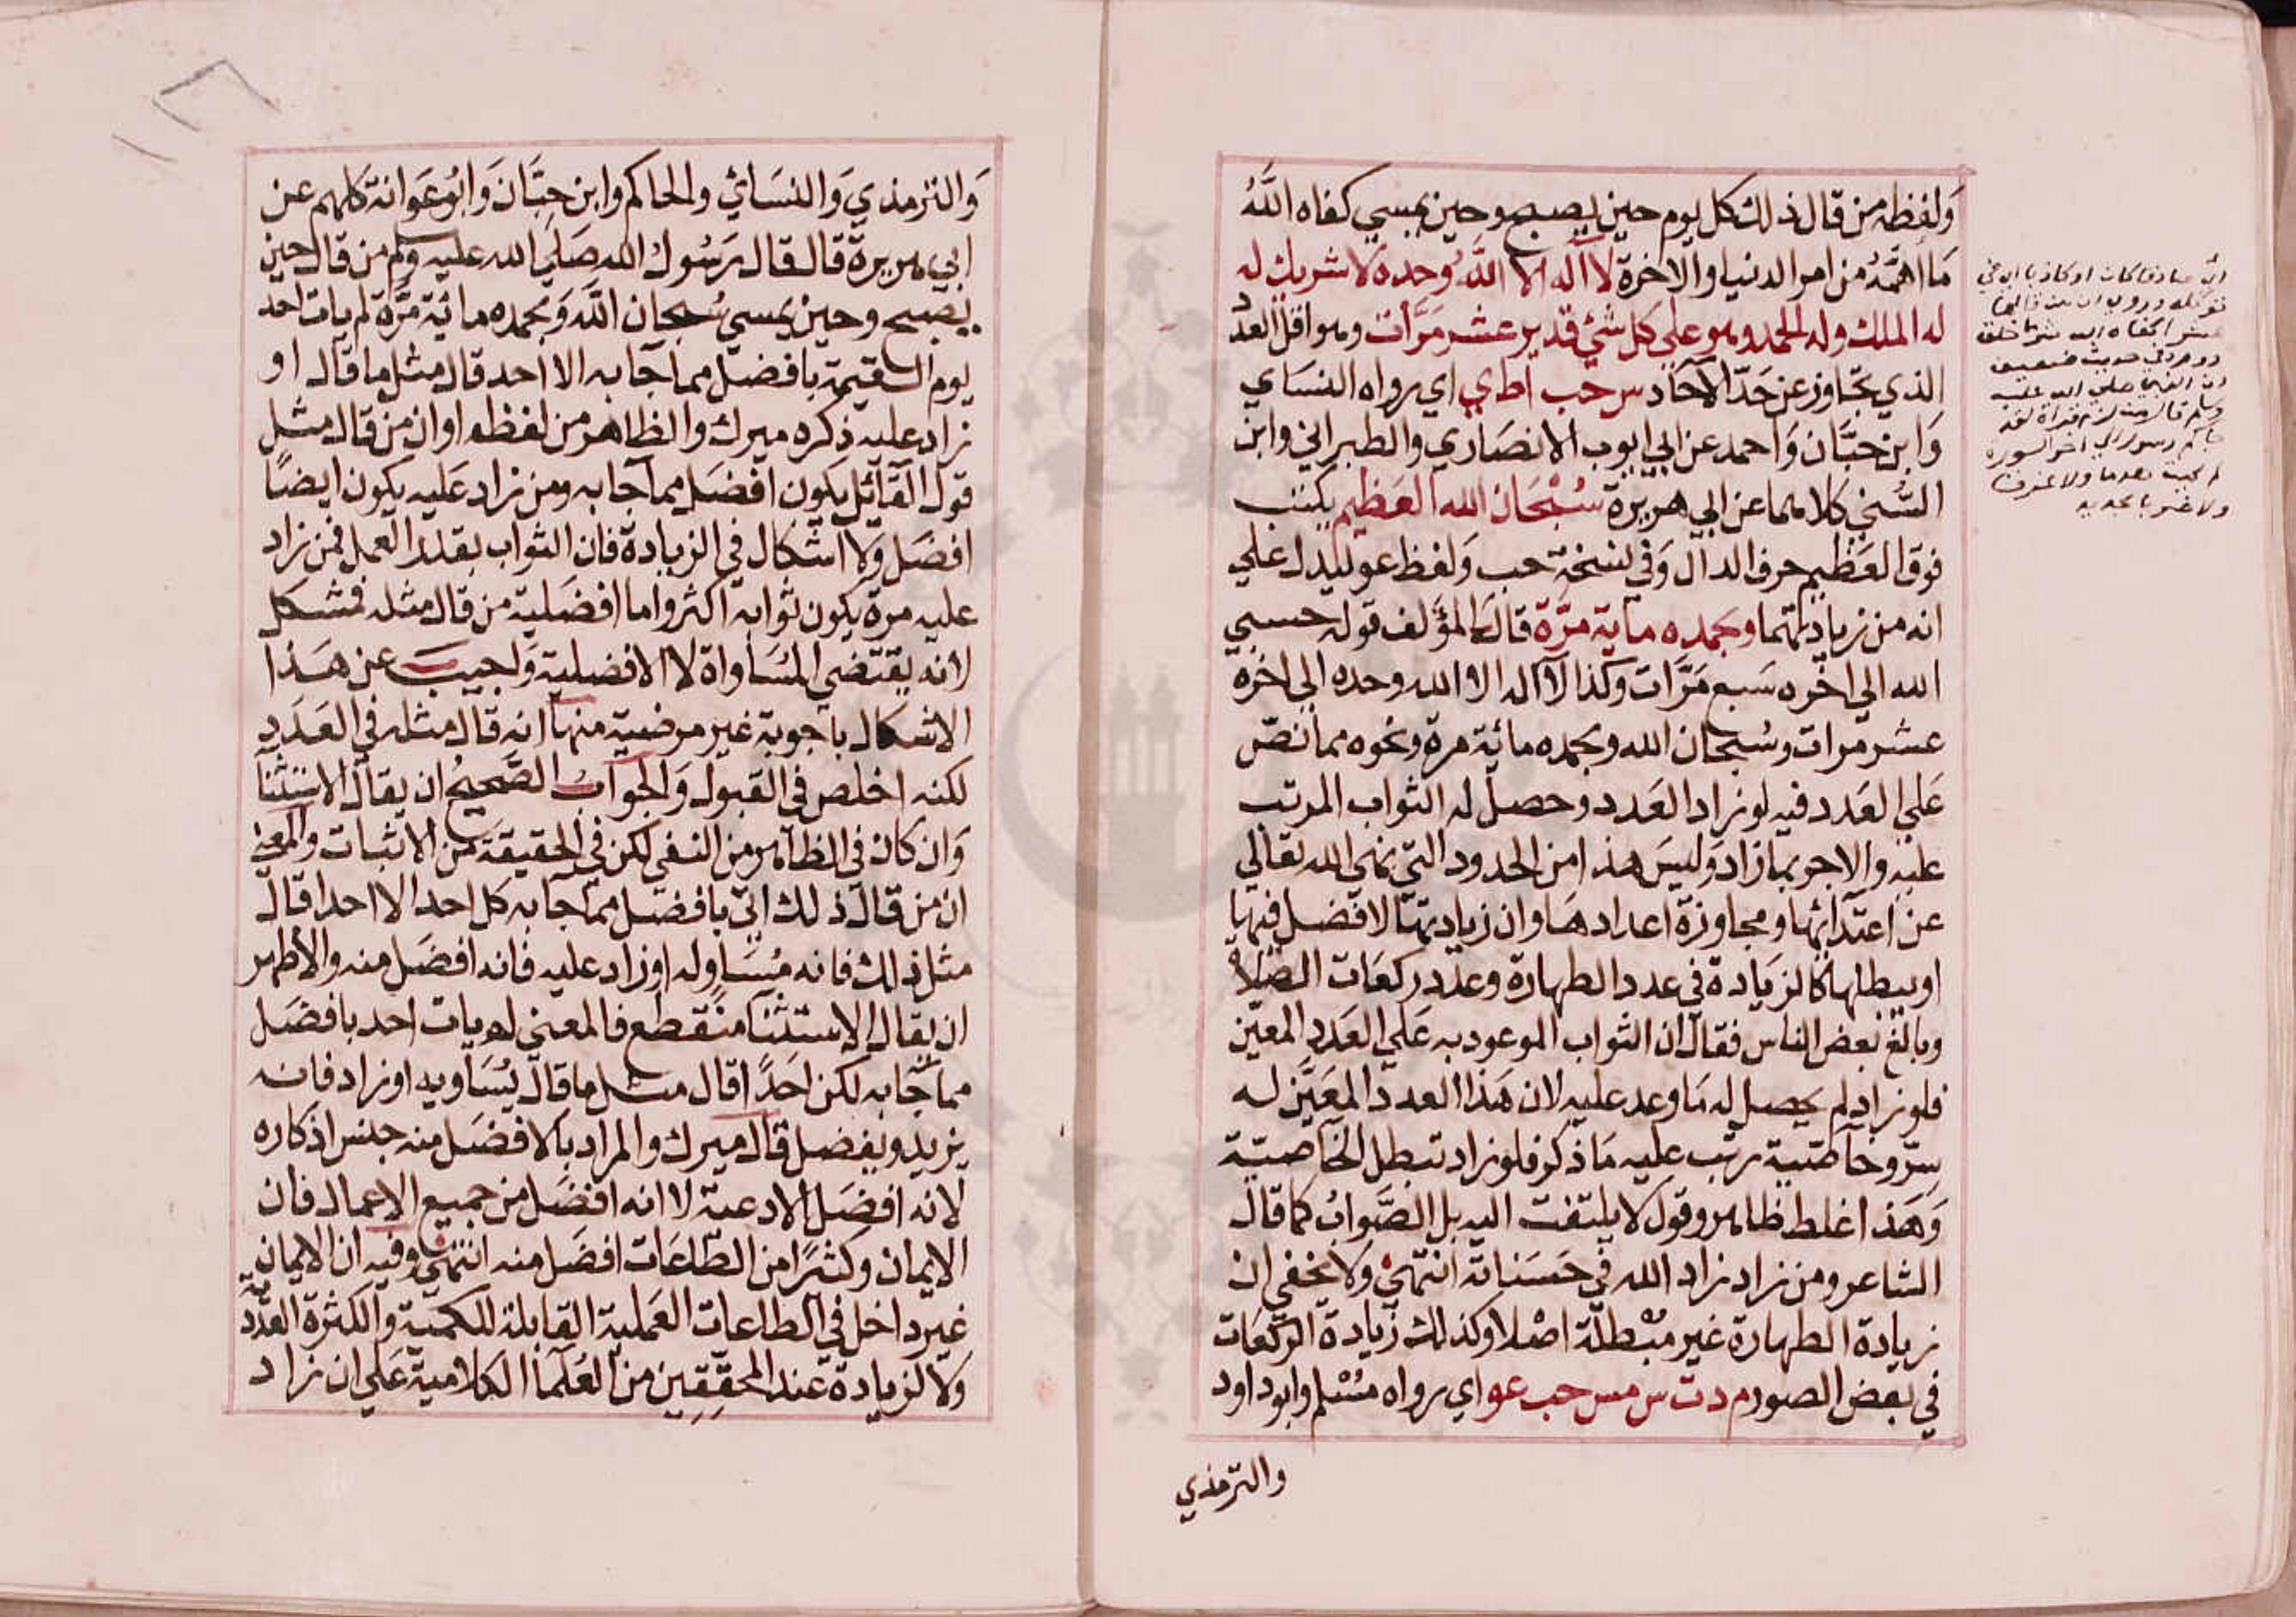 وَلفظه من قال ذلك كل يوم حين يصبح وحين يمسي كفاه اللَّهُ
مَا اهمَّهُ من امر الدنيا والاخرة لا اله الا اللَّهُ وحده لا شريك له
له الملك وله الحمد وهو علي كل شئ قدير عشر مَرَّات وهو اقل العدد
الذي يتجاوز عن حَدّ الآحاد س حب ا ط ي اي رواه النسَاي
وَابن حبَّان وَاحمد عن ابي ايوب الانصَاري والطبراني وابن
السُّني كلاهما عن ابي هريرة سُبْحَان الله العَظيم يكتب
فوق العَظيم حرف الدال وَفي نسخة حب وَلفظ عو ليدل علي
انه من زيادتهما وبحمده ماية مرَّة قال المؤَلف قوله حسبي
الله الي اخره سَبع مَرَّات وكذا لا اله الا الله وحده الي اخره
عشر مرات وسُبحان الله وبحمده مائة مرة ونحوه مما نصّ
عَلي العَدد فيه لو زاد العَدد وحصل له الثواب المرتب
عليه والاجر بما زاد وَليسَ هذا من الحدود التي نهي الله تعالي
عن اعتدائها ومجاوزة اعدادهَا وان زيادتها لا فضل فيها
او يبطلها كالزيَادة في عدد الطهارة وعدد ركعَات الصّلاة
وبالغ بعض الناس فقال ان الثواب الموعود به عَلي العَدد المعيّن
فلو زاد لم يحصل له مَا وعد عليه لان هَذا العدد المعَيَّن له
سِرّ وخاصّية رتب عليه مَا ذكر فلو زاد تبطل الخاصيّة
وَهَذا غلط ظاهر وقول لا يلتفت اليه بل الصَّوابُ كما قال
الشاعر ومن زاد زاد الله في حَسَناته انتهي وَلا يخفي ان
زيادة الطهارة غير مبْطلَة اصْلا وكذلك زيَادة الركعَات
في بعض الصور م د ت س مس حب عو اي رواه مسْلم وابوداود
والترمذي
وَالترمذي وَالنسَائي والحاكم وابن حِبَّان وَابُوعَوانة كلهم عن
ابي هريرة قال قال رَسُول الله صَلي الله عليه وسلم من قال حين
يصبح وحين يمسي سُبحان اللَّه وَبحمده مائة مرَّة لم يات احد
يوم القيمة بافضل مما جَا به الا احد قال مثل ما قال او
زاد عليه ذكره ميرك والظاهر من لفظه او ان من قال مثل
قول القَآئل يكون افضَل مما جَا به ومن زاد عَليه يكون ايضًا
افضَل وَلا اشكال في الزيادة فان الثواب بقدر العمل فمن زاد
عليه مرة يكون ثوابه اكثر واما افضَلية من قال مثله فمشكل
لانه يقتضي المسَاواة لا الافضلية وَاجيبَ عن هَذا
الاشكال باجوبة غير مرضية منها انه قال مثله في العَدَد
لكنه اخلص في القبول وَالجوابُ الصَّحيحُ ان يقال الاستثنا
وَان كان في الظاهر من النفي لكن في الحقيقة من الاثبات والمعني
ان من قال ذلك اتي بافضل مما جا به كل احد الا احدا قال
مثل ذلك فانه مُسَاو له او زاد عليه فانه افضَل منه والأظهر
ان يقال الاستثنا منقطع فالمعني لم يات احد بافضَل
مما جَا به لكن احَدًا قال مثل ما قال يُسَاويه او زاد فانه
يزيد ويفضل قال ميرك والمراد بالافضَل منه جنس اذكاره
لانه افضَل الادعية لا انه افضَل من جميع الاعمال فان
الايمان وكثيرًا من الطّاعَات افضَل منه انتهي وفيه ان الايمان
غير داخل في الطاعات العَملية القابلة للكمية والكثرة العدَدية
ولا الزيادة عند المحقِّقين من العُلَمآ الكلامية عَلي ان زاد